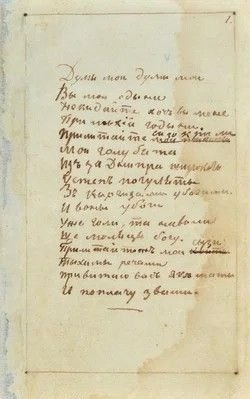 1.
Думы мои думы мои
Вы мои едыни
Некидайте хочь вы мене
При лыхій годыни.
Прилитайте сизокрыли
Мои голубята
Изъ за Днипра широкого
Устепъ погуляты
Зъ Кыргизами убогими
И воны убоги
Уже голи, та наволи
Ще молятця богу.
Прилитайтежъ мои сизи
Тыхими речами
привитаю васъ якъ маты
И поплачу звами.